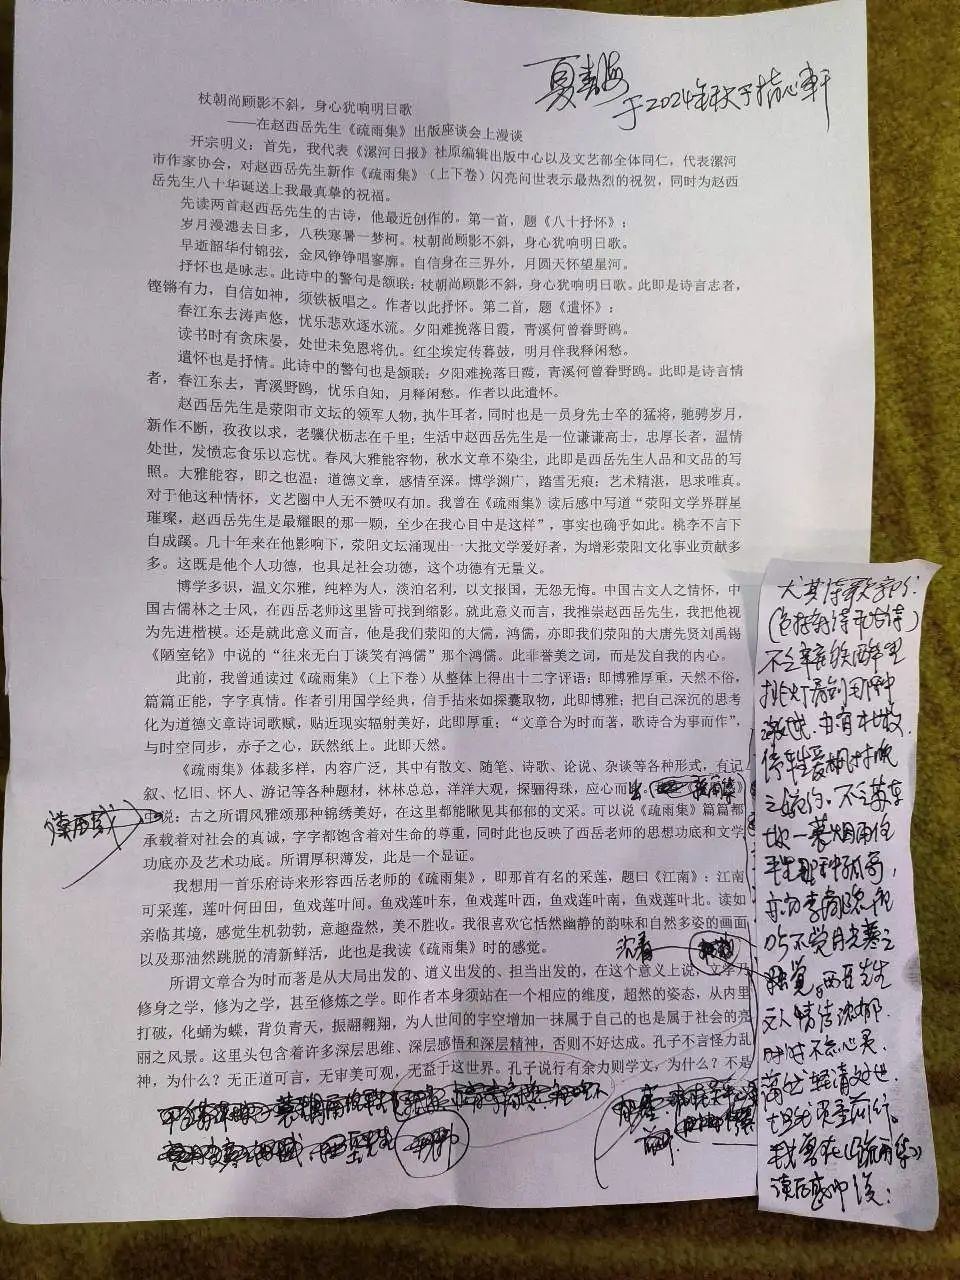 于2024年秋于指心轩
杖朝尚顾影不斜，身心犹响明日歌
——在赵西岳先生《疏雨集》出版座谈会上漫谈
开宗明义：首先，我代表《漯河日报》社原编辑出版中心以及文艺部全体同仁，代表漯河
市作家协会，对赵西岳先生新作《疏雨集》（上下卷）闪亮问世表示最热烈的祝贺，同时为赵西
岳先生八十华诞送上我最真挚的祝福。
先读两首赵西岳先生的古诗，他最近创作的。第一首，题《八十抒怀》：
岁月漫漶去日多，八秩寒暑一梦柯。杖朝尚顾影不斜，身心犹响明日歌。
早逝韶华付锦弦，金风铮铮唱寥廓。自信身在三界外，月圆天怀望星河。
抒怀也是咏志。此诗中的警句是颔联：杖朝尚顾影不斜，身心犹响明日歌。此即是诗言志者，
铿锵有力，自信如神，须铁板唱之。作者以此抒怀。第二首，题《遣怀》：
春江东去涛声悠，忧乐悲欢逐水流。夕阳难挽落日霞，青溪何曾眷野鸥。
读书时有贪床晏，处世未免恩将仇。红尘埃定传暮鼓，明月伴我释闲愁。
遣怀也是抒情。此诗中的警句也是颔联：夕阳难挽落日霞，青溪何曾眷野鸥。此即是诗言情
者，春江东去，青溪野鸥，忧乐自知，月释闲愁。作者以此遣怀。
赵西岳先生是荥阳市文坛的领军人物，执牛耳者，同时也是一员身先士卒的猛将，驰骋岁月，
新作不断，孜孜以求，老骥伏枥志在千里；生活中赵西岳先生是一位谦谦高士，忠厚长者，温情
处世，发愤忘食乐以忘忧。春风大雅能容物，秋水文章不染尘，此即是西岳先生人品和文品的写
照。大雅能容，即之也温；道德文章，感情至深。博学渊广，踏雪无痕；艺术精湛，思求唯真。
对于他这种情怀，文艺圈中人无不赞叹有加。我曾在《疏雨集》读后感中写道“荥阳文学界群星
璀璨，赵西岳先生是最耀眼的那一颗，至少在我心目中是这样”，事实也确乎如此。桃李不言下
自成蹊。几十年来在他影响下，荥阳文坛涌现出一大批文学爱好者，为增彩荥阳文化事业贡献多
多。这既是他个人功德，也具足社会功德，这个功德有无量义。
博学多识，温文尔雅，纯粹为人，淡泊名利，以文报国，无怨无悔。中国古文人之情怀，中
国古儒林之士风，在西岳老师这里皆可找到缩影。就此意义而言，我推崇赵西岳先生，我把他视
为先进楷模。还是就此意义而言，他是我们荥阳的大儒，鸿儒，亦即我们荥阳的大唐先贤刘禹锡
《陋室铭》中说的“往来无白丁谈笑有鸿儒”那个鸿儒。此非誉美之词，而是发自我的内心。
此前，我曾通读过《疏雨集》（上下卷）从整体上得出十二字评语：即博雅厚重，天然不俗，
篇篇正能，字字真情。作者引用国学经典，信手拈来如探囊取物，此即博雅；把自己深沉的思考
化为道德文章诗词歌赋，贴近现实辐射美好，此即厚重；“文章合为时而著，歌诗合为事而作”，
与时空同步，赤子之心，跃然纸上。此即天然。
《疏雨集》体裁多样，内容广泛，其中有散文、随笔、诗歌、论说、杂谈等各种形式，有记
叙、忆旧、怀人、游记等各种题材，林林总总，洋洋大观，探骊得珠，应心而
中说：古之所谓风雅颂那种锦绣美好，在这里都能瞅见其郁郁的文采。可以说《疏雨集》篇篇都
读后感
承载着对社会的真诚，字字都饱含着对生命的尊重，同时此也反映了西岳老师的思想功底和文学
功底亦及艺术功底。所谓厚积薄发，此是一个显证。
我想用一首乐府诗来形容西岳老师的《疏雨集》，即那首有名的采莲，题曰《江南》：江南
可采莲，莲叶何田田，鱼戏莲叶间。鱼戏莲叶东，鱼戏莲叶西，鱼戏莲叶南，鱼戏莲叶北。读如
亲临其境，感觉生机勃勃，意趣盎然，美不胜收。我很喜欢它恬然幽静的韵味和自然多姿的画面
以及那油然跳脱的清新鲜活，此也是我读《疏雨集》时的感觉。
所谓文章合为时而著是从大局出发的、道义出发的、担当出发的，在这个意义上说，文学乃
修身之学，修为之学，甚至修炼之学。即作者本身须站在一个相应的维度，超然的姿态，从内里
打破，化蛹为蝶，背负青天，振翮翱翔，为人世间的宇空增加一抹属于自己的也是属于社会的亮
丽之风景。这里头包含着许多深层思维、深层感悟和深层精神，否则不好达成。孔子不言怪力乱
神，为什么？无正道可言，无审美可观，无益于这世界。孔子说行有余力则学文，为什么？不是
尤其诗歌部分：
（包括新诗和古诗）
不乏辛弃疾醉里
挑灯看剑那种
激越，由有
停车坐爱枫林晚
之婉约，不乏苏东
坡一蓑烟雨任
平生那种孤高，
亦有李商隐夜
吟不觉月光寒之
独觉。西岳先生
文人情结浓郁，
时时不忘心灵，
我曾在《疏雨集》
读后感中说：